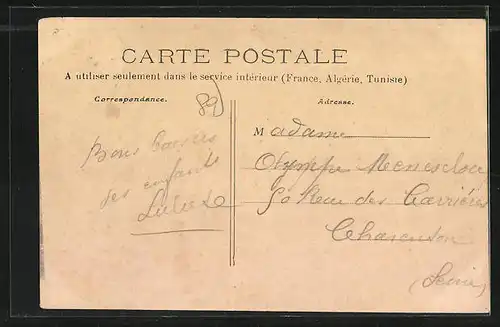 CARTE POSTALE
A utiliser seulement dans le service intérieur (France, Algérie, Tunisie)
Correspondance.
Adresse.
Bons baisers
des enfants
Madame
Olympe
Rue des Carrières
Charenton
(Seine)